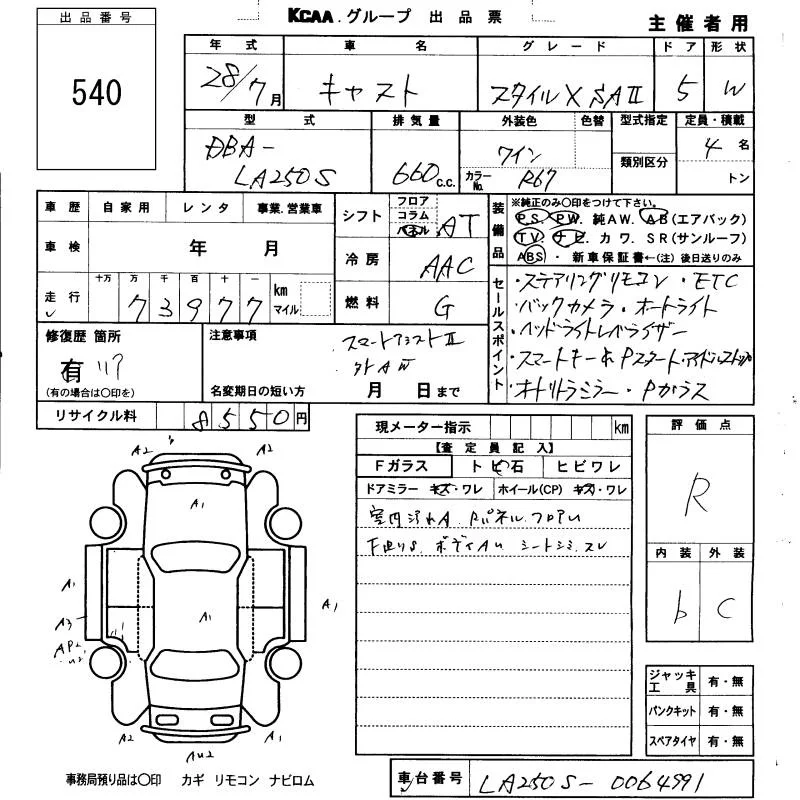 KCAA. グループ 出品票
主催者用
出品番号
540
年式
28/7月
車名
キャスト
グレード
スタイルX SAⅡ
ドア
5
形状
W
型式
DBA-
LA250S
排気量
660 c.c.
外装色 色替
ワイン
カラーNo. R67
型式指定
類別区分
定員・積載
4名
トン
車歴 自家用 レンタ 事業.営業車
車検 年 月
走行 十万 万 千 百 十 一
73977 km マイル
シフト フロア コラム パネル AT
冷房 AAC
燃料 G
装備品
※純正のみ○印をつけて下さい。
PS. PW. 純AW. AB(エアバック)
TV. ナビ. カワ. SR(サンルーフ)
ABS ・ 新車保証書←(注) 後日送りのみ
セールスポイント
・ステアリングリモコン・ETC
・バックカメラ・オートライト
・ヘッドライトレベライザー
・スマートキー&Pスタート・アイドルストップ
・オートリトラミラー・Pガラス
修復歴 箇所
有
(有の場合は○印を)
注意事項
スマートアシストⅡ
外AW
名変期日の短い方 月 日まで
リサイクル料 8550円
現メーター指示 km
【査定員記入】
Fガラス トビ石 ヒビワレ
ドアミラー キズ・ワレ ホイール(CP) キズ・ワレ
室内汚れA. Rパネル.フロアU
F廻りS. ボディAU シートシミ.スレ
評価点
R
内装 外装
b C
ジャッキ工具 有・無
パンクキット 有・無
スペアタイヤ 有・無
A2
A2
A1
A1
A1
A3
A1
A1
AP2
U2
A2
AU2
A1
事務局預り品は○印 カギ リモコン ナビロム
車台番号 LA250S-0064991